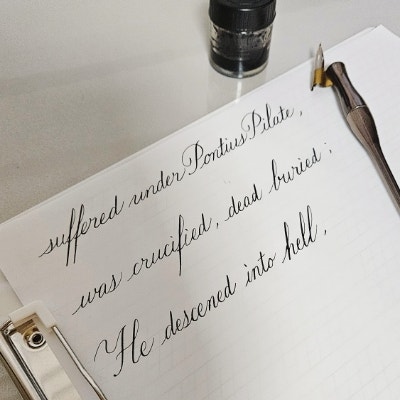 suffered under Pontius Pilate,
was crucified, dead buried;
He descened into hell,